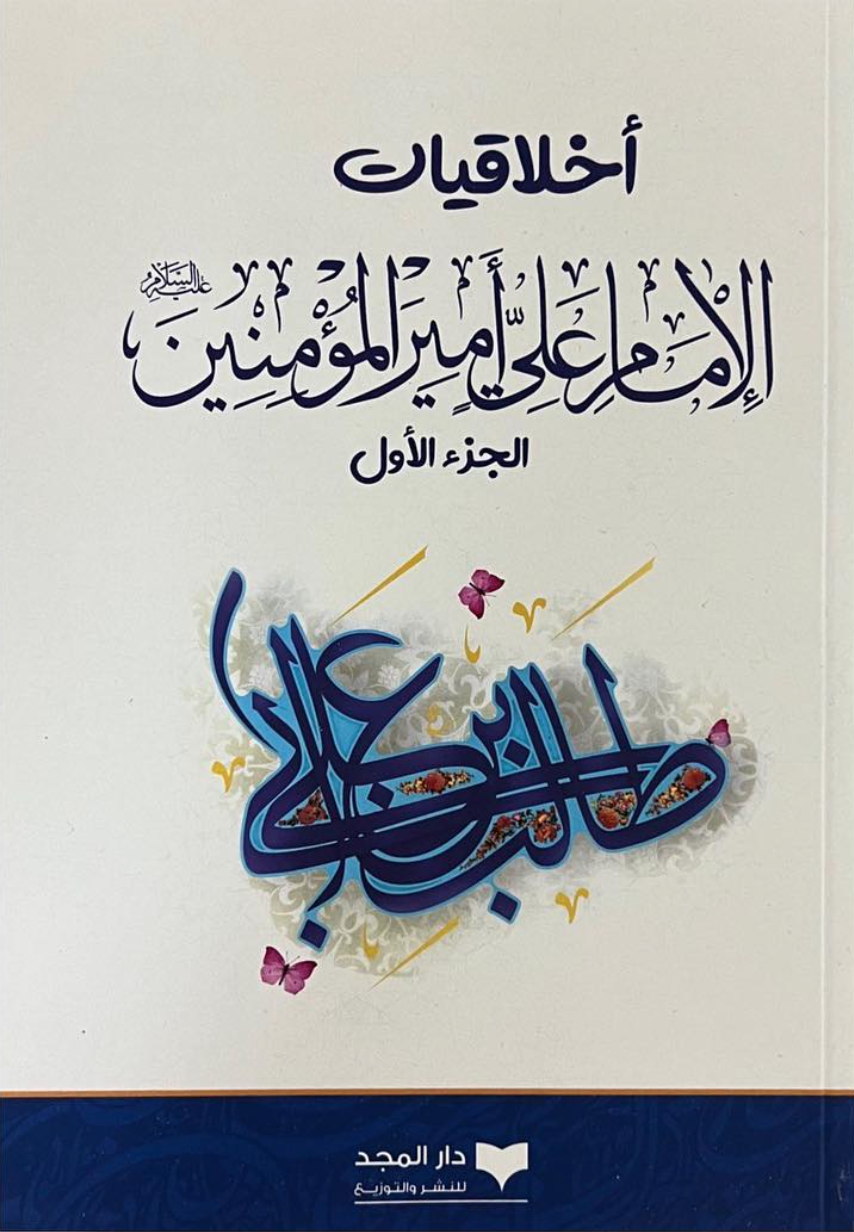 أخلاقيات
الإِمَامِ عَلِيٍّ أَمِيرِ الْمُؤْمِنِينَ عليه السلام
الجزء الأول
علي بن أبي طالب
دار المجد
للنشر والتوزيع